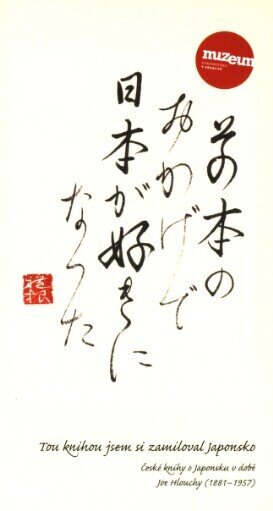 muzeum
本の
おかげで
日本が好きに
なった
Tou knihou jsem si zamiloval Japonsko
České knihy o Japonsku v době
Joe Hlouchy (1881–1957)